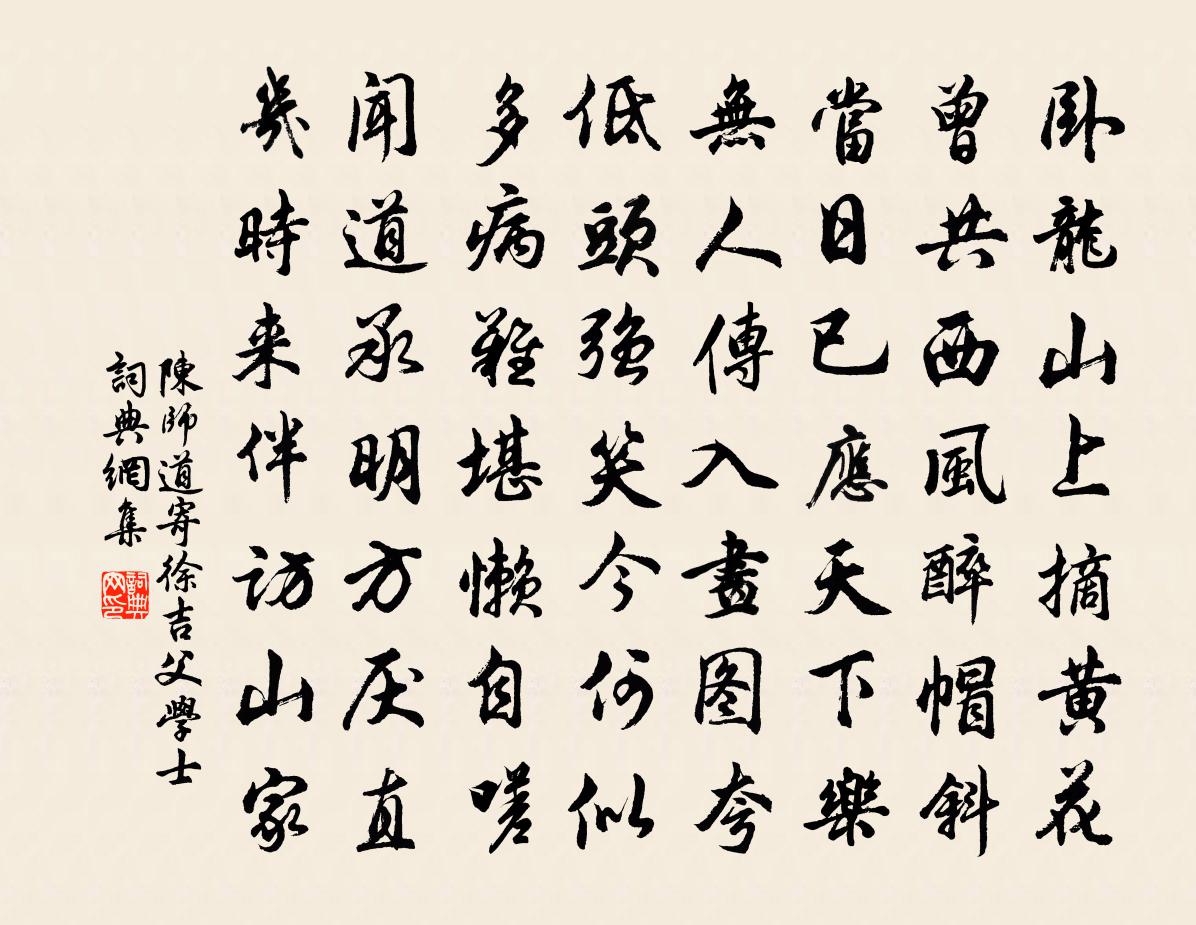 卧龍山上摘黄花
曾共西風醉帽斜
當日已應天下樂
無人傳入畫图夸
低頭強笑今何似
多病難堪懒自嗟
闻道承明方厌直
幾時来伴访山家
陳師道寄徐吉父學士
詞典網集
詞典网印